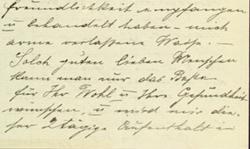 freundlichkeit empfangen
u behandelt haben mich
arme verlassene Waise. —
Solch guten lieben Menschen
kann man nur das Beste
für Ihr Wohl u Ihre Gesundheit
wünschen, u wird mir die-
ser 2tägige Aufenthalt in